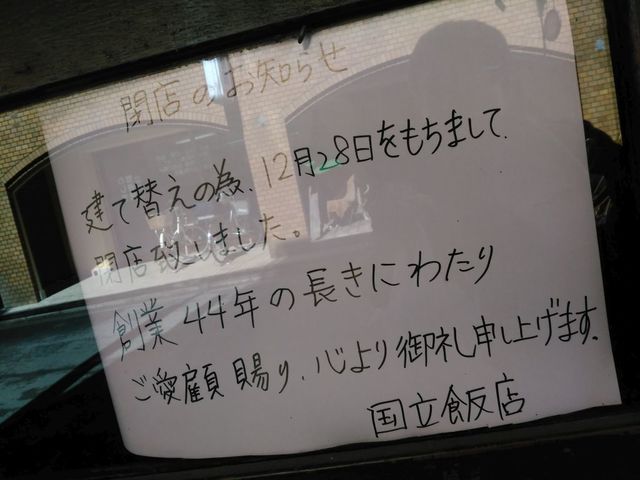 閉店のお知らせ
建て替えの為、12月28日をもちまして、
閉店致しました。
創業44年の長きにわたり
ご愛顧賜り、心より御礼申し上げます。
国立飯店